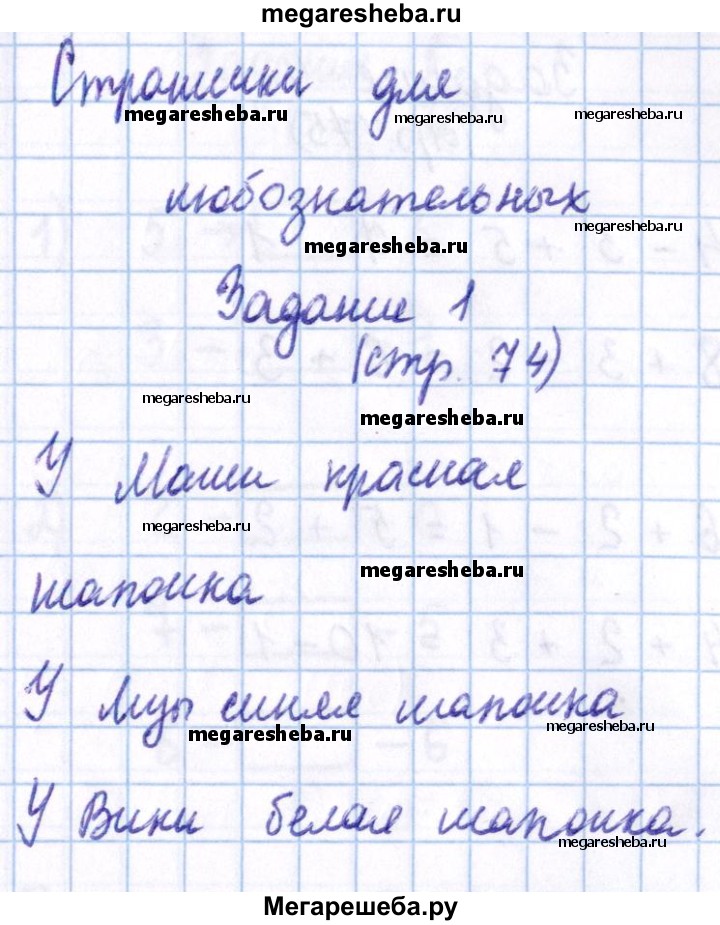 megaresheba.ru
Странички для
megaresheba.ru
megaresheba.ru
megaresheba.ru
любознательных
megaresheba.ru
megaresheba.ru
Задание 1
(стр. 74)
megaresheba.ru
megaresheba.ru
У Маши красная
megaresheba.ru
megaresheba.ru
шапочка
У Музы синяя шапочка
megaresheba.ru
megaresheba.ru
У Вики белая шапочка.
megaresheba.ru
Мегарешеба.ру